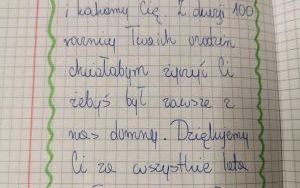 i kochamy Cię. Z okazji 100
rocznicy Twoich urodzin
chciałabym życzyć Ci
żebyś był zawsze z
nas dumny. Dziękujemy
Ci za wszystkie lata